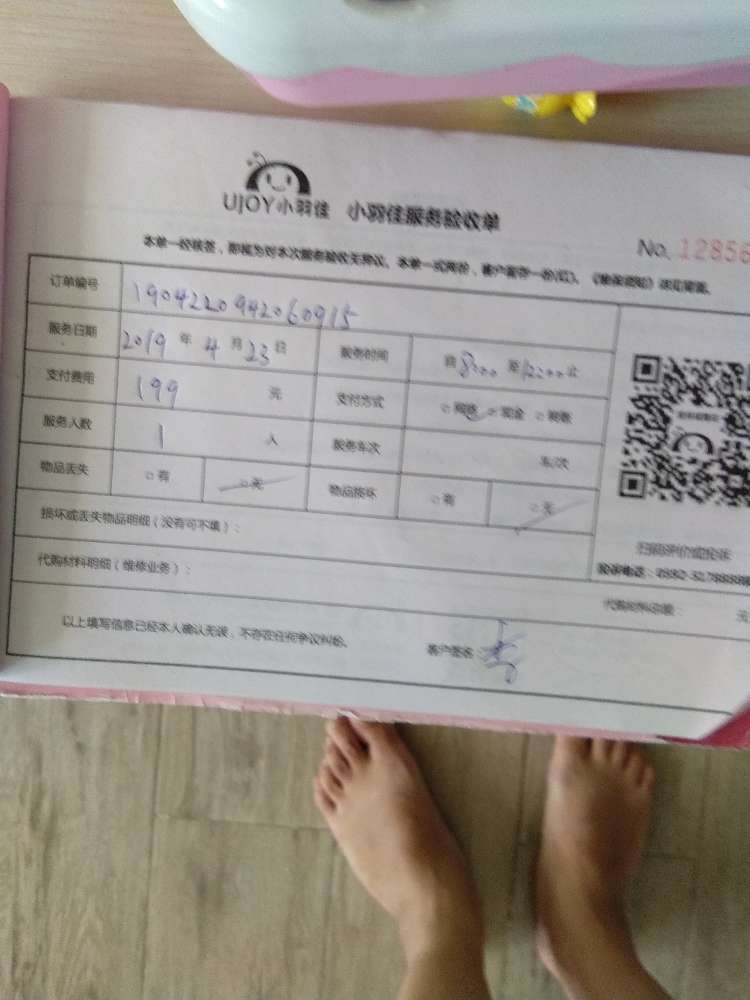 UJOY小羽佳 小羽佳服务验收单
No. 12856
本单一经核签，即视为对本次服务验收无异议。本单一式两份，客户留存一份(红)。
订单编号 1904220942060915
服务日期 2019 年 4 月 23 日 服务时间 自 8:00 至 12:00 止
支付费用 199 元 支付方式 网络 现金 转账
服务人数 1 人 服务车次 车/次
物品丢失 有 无 物品损坏 有 无
损坏或丢失物品明细（没有可不填）：
扫码评价或投诉
代购材料明细（维修业务）：
代购材料总额： 元
以上填写信息已经本人确认无误，不存在任何争议纠纷。 客户签名：